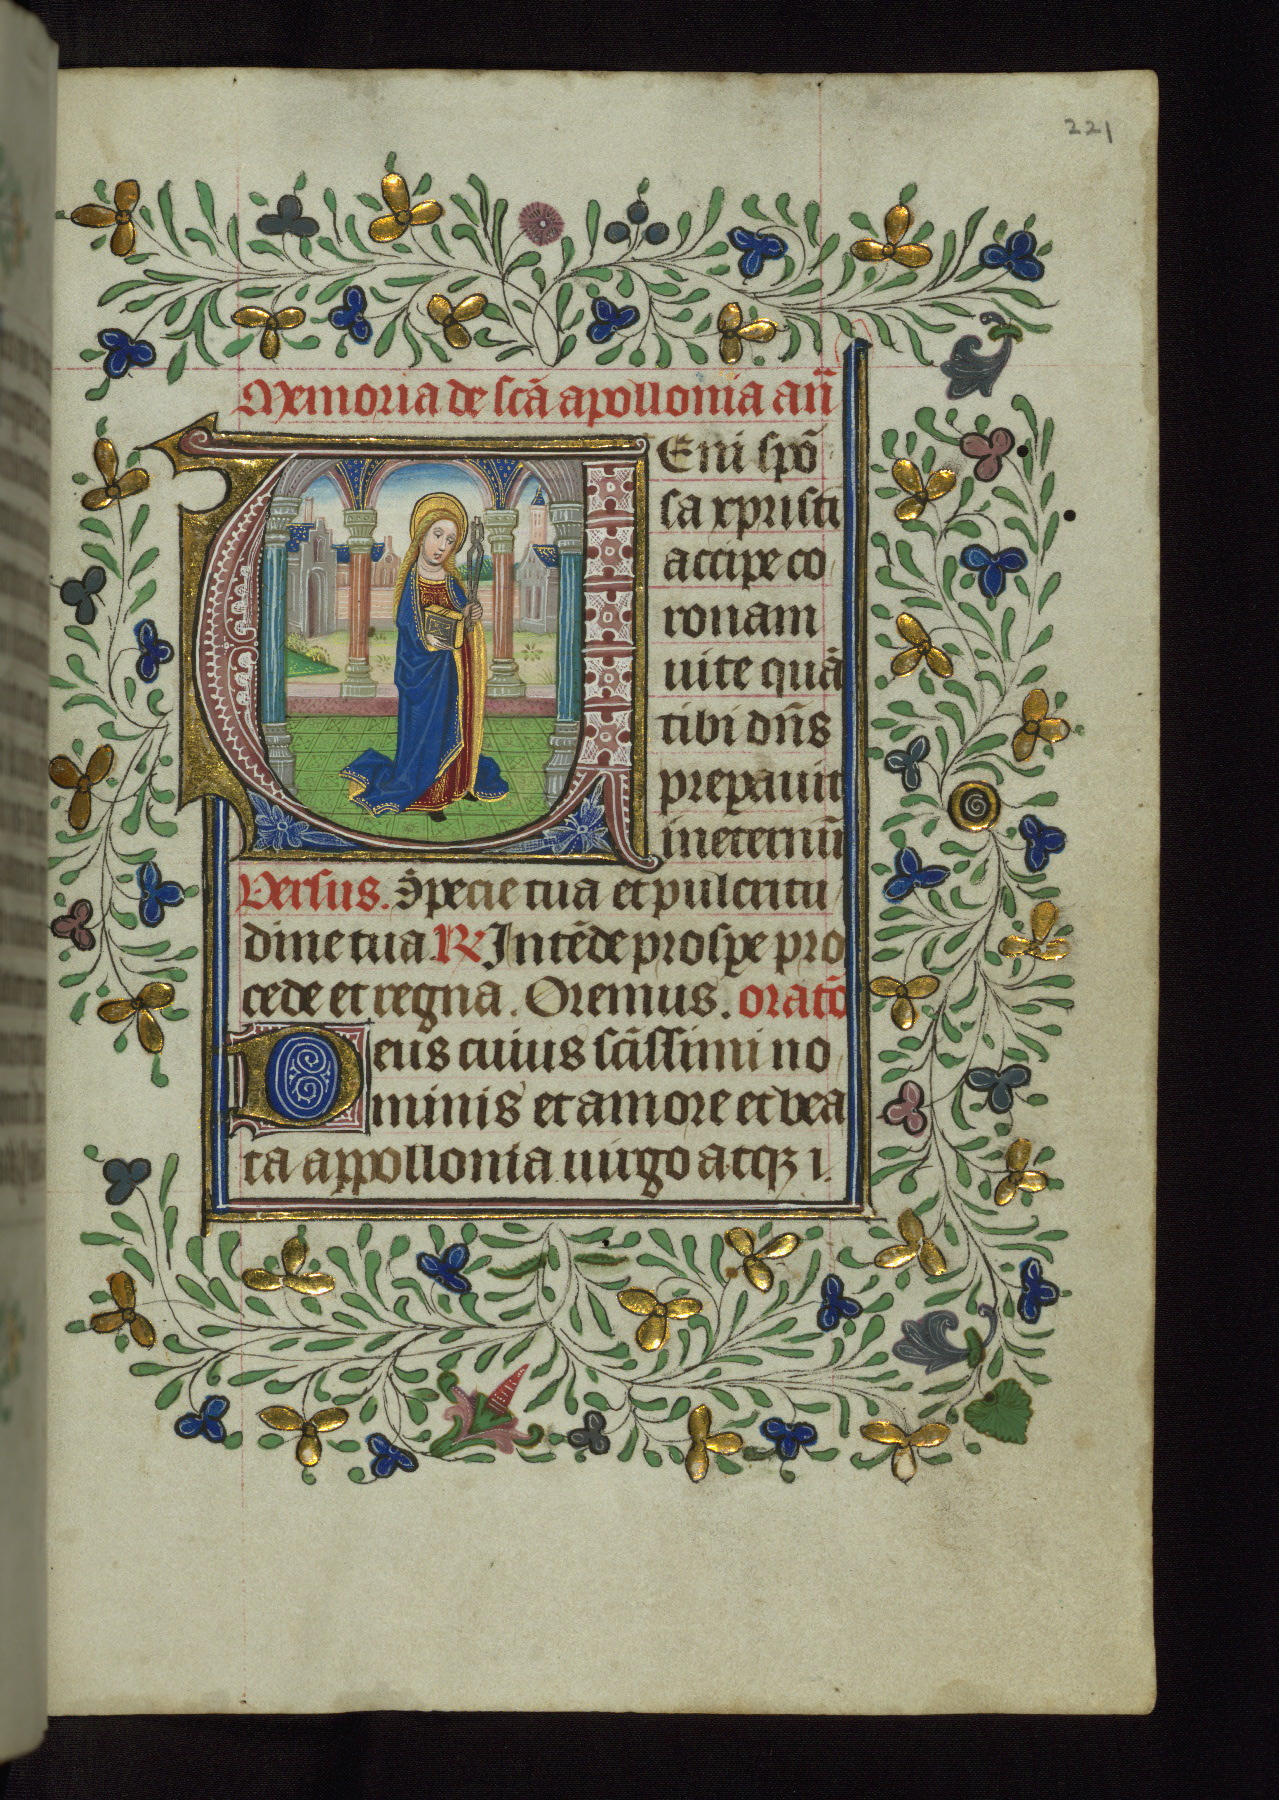 221
Memoria de scā apollonia añ
VEni spō
sa xpristi
accipe co
ronam
uite quā
tibi dn̄s
preparauit
in eternū
Versus. Specie tua et pulcritu
dine tua R Intēde prospe pro
cede et regna. Oremus. oratō
Deus cuius scīssimi no
minis et amore et bea
ta appollonia uirgo atqꝫ i.